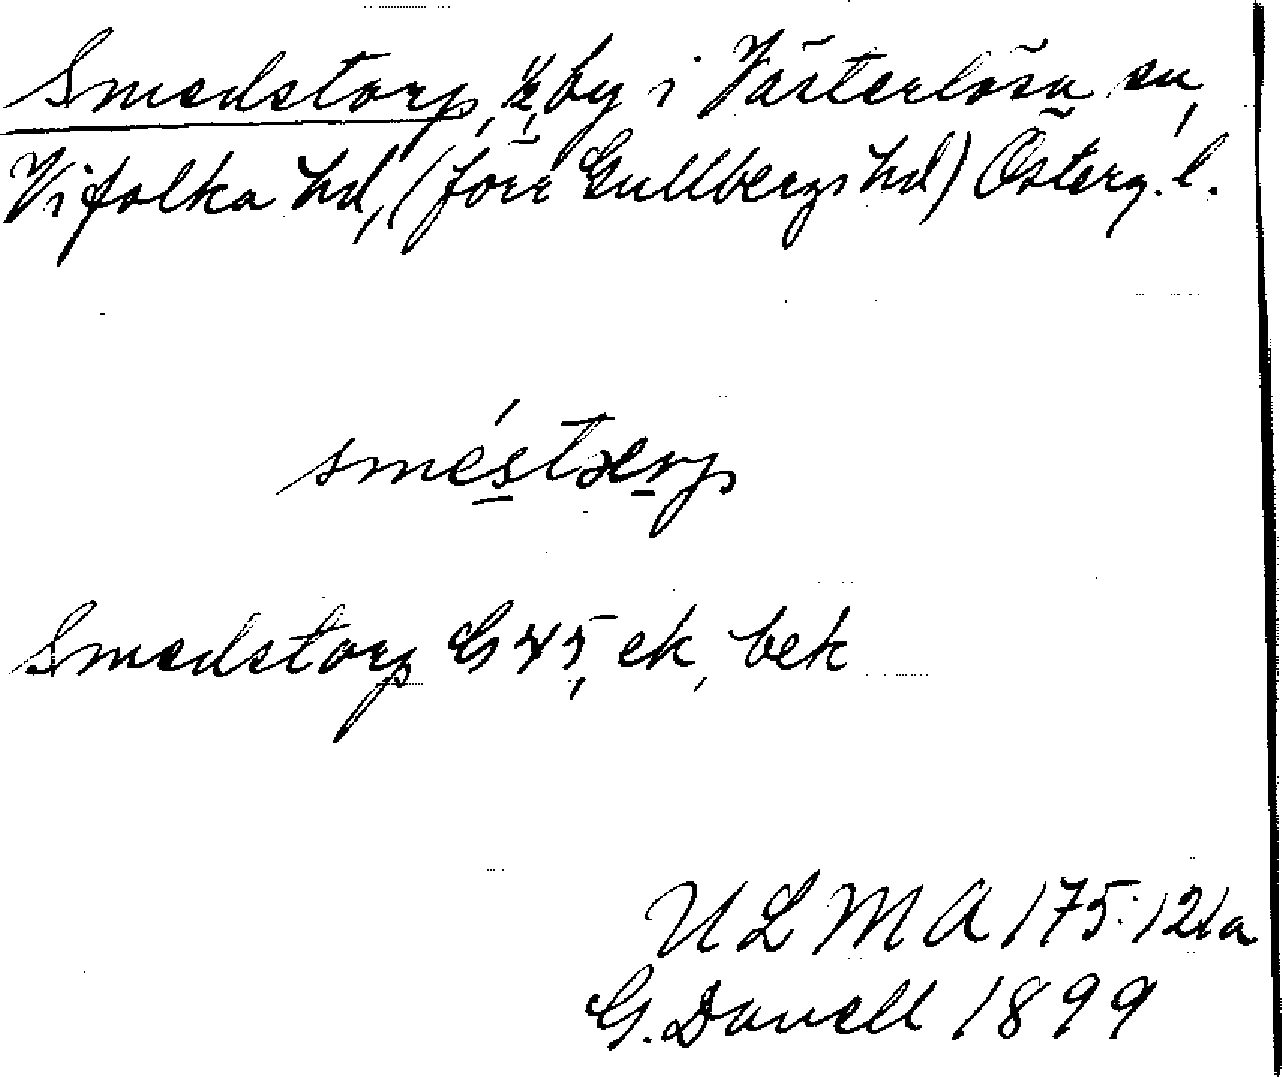 Smedstorp, by i Västerlösa sn,
Vifolka hd, (förr Gullbergs hd) Österg. l.
sméstxrp
Smedstorp G 45, ek, bek
ULMA 175:121a
G. Davell 1899